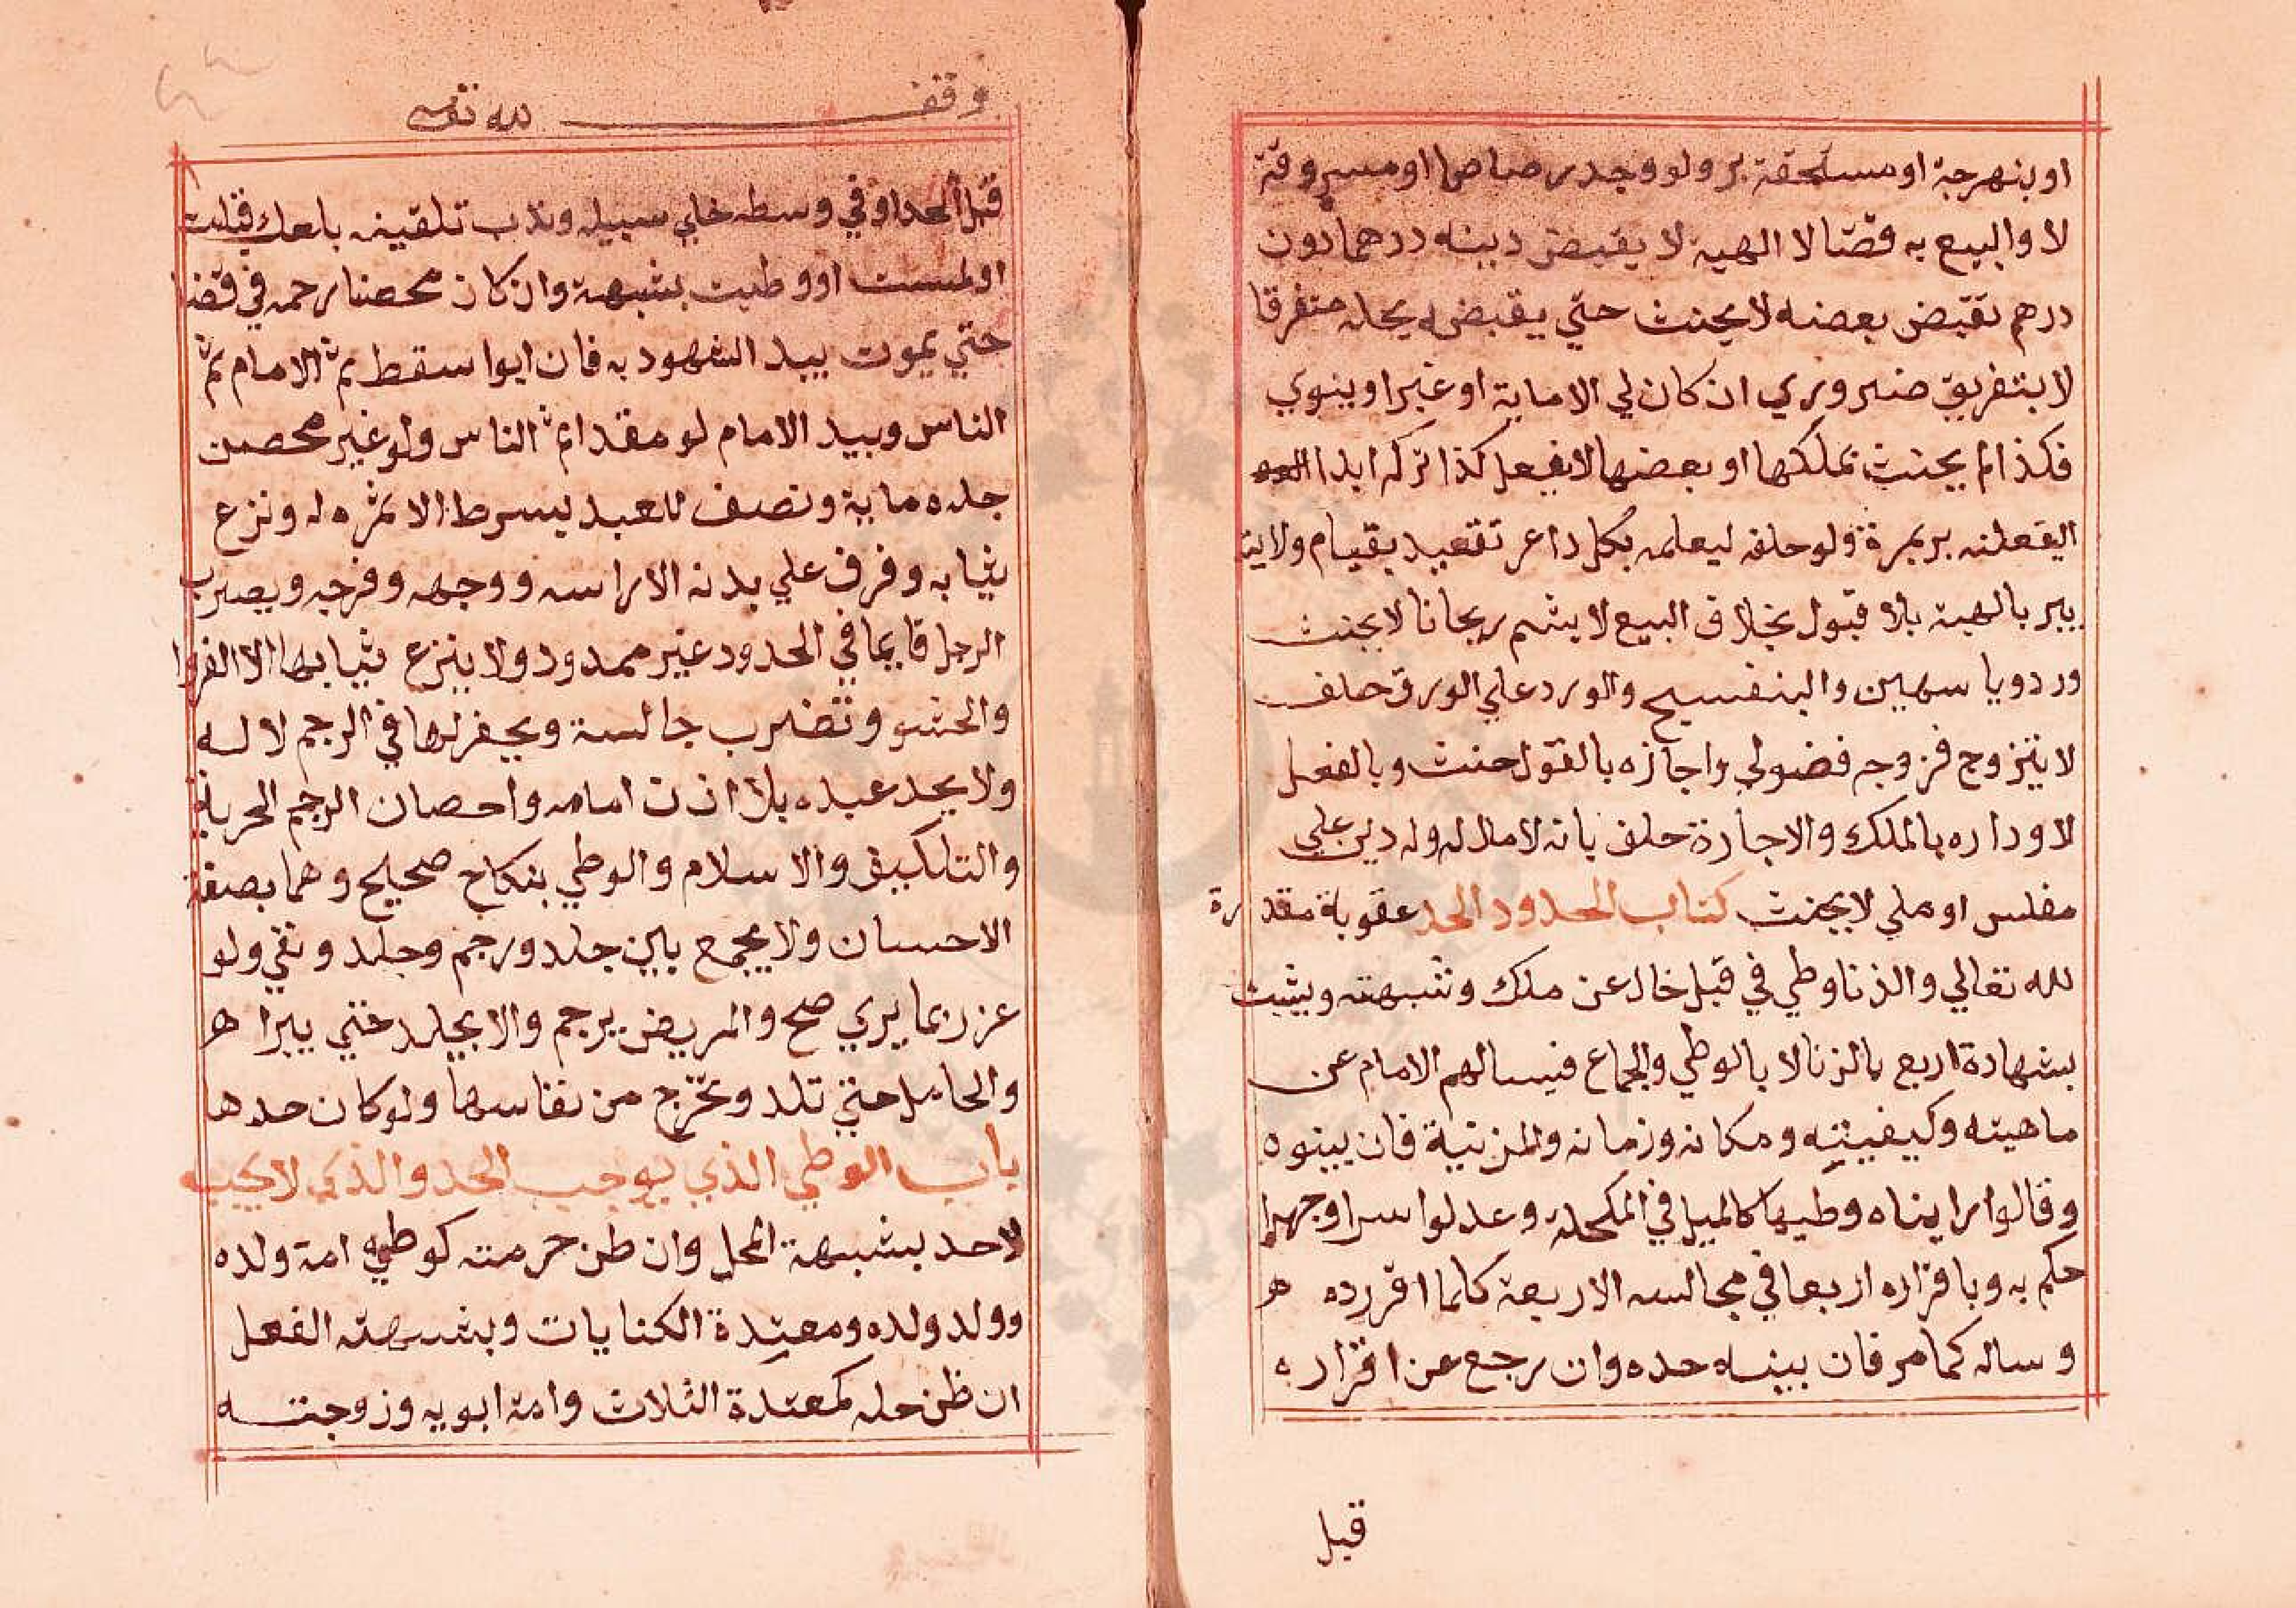 او بنهرجة او مستحقة بر ولو وجد رصاصا او مسروقة
لا والبيع به قضا لا الهبة لا يقبض دينه درهما دون
درهم نقبض بعضه لا يحنث حتي يقبض يحله متفرقا
لا بتفريق ضروري ان كان لي الا ماية او غير او ينوي
فكذا لم يحنث بملكها او بعضها لا يفعل كذا تركه ابدا
اليفعلنه بر بمرة ولو حلفه ليعلمه بكل داعر تقعيد بقيام ولايته
يبر بالهبة بلا قبول بخلاف البيع لا يشم ريحانا لا يحنث
ورد ويا سهين والبنفسيح والورد علي الورق حلف
لا يتزوج فزوجه فضولي واجازه بالقول حنث وبالفعل
لا وداره بالملك والاجارة حلف بانه لا مال له وله دين علي
مفلس او ملي لا يحنث كتاب الحدود الحد عقوبة مقدرة
لله تعالي والذنا وطي في قبل خال عن ملك وشبهته ويثبت
بشهادة اربع بالزنا لا بالوطي والجماع فيسالهم الامام عن
ماهيته وكيفيته ومكانه وزمانه والمزنية فان بينوه
وقالوا راينا ه وطيها كالميل في المكحلة وعدلوا سرا وجهرا
حكم به وباقراره اربعا في مجالسه الاربعة كلما اقر رده ه
وساله كما مر فان بينه حده وان رجع عن اقراره
قبل
وقف لله تعالى
قبل الحد او في وسطه خلي سبيله وندب تلقينه بلعلك قبلت
او لمست او وطيت بشبهة وان كان محصنا رجمه في فضا
حتي يموت يبد الشهود به فان ابوا سقط ثم الامام ثم
الناس ويبد الامام لو مقدا ثم الناس ولو غير محصن
جلده ماية ونصف للعبد بسرط الا ثمره له ونزع
ثيابه وفرف علي بدنه الا راسه ووجهه وفرجه ويضرب
الرجل قايما في الحدود غير ممدود ولا ينزع ثيابها الا الفروا
والحشو وتضرب جالسة ويحفر لها في الرجم لا له
ولا يحد عبده بلا اذن امامه واحصان الرجم الحرية
والتلكيف والاسلام والوطي بنكاح صحيح وهما بصفة
الاحسان ولا يجمع بين جلد ورجم وجلد ونفي ولو
عزر بما يري صح والمريض يرجم والا يجلد حتي يبرا ه
والحامل حتي تلد وتخرج من نفاسها ولو كان حدها
باب الوطي الذي يوجب الحد والذي لا يجبه
لا حد بشبهة المحل وان ظن حرمته كوطي امة ولده
وولد ولده ومعتدة الكنايات وبشبهته الفعل
ان ظن حله كمعتدة الثلاث وامة ابويه وزوجته